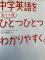 中学英語を
もう一度
ひとつひとつ
わかりやすく。